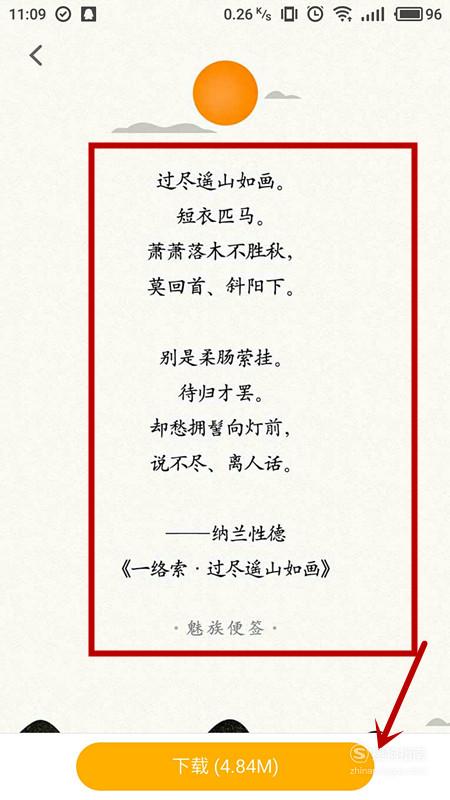 11:09
0.26 K/s
96
过尽遥山如画。
短衣匹马。
萧萧落木不胜秋，
莫回首、斜阳下。
别是柔肠萦挂。
待归才罢。
却愁拥髻向灯前，
说不尽、离人话。
——纳兰性德
《一络索·过尽遥山如画》
·魅族便签·
下载 (4.84M)